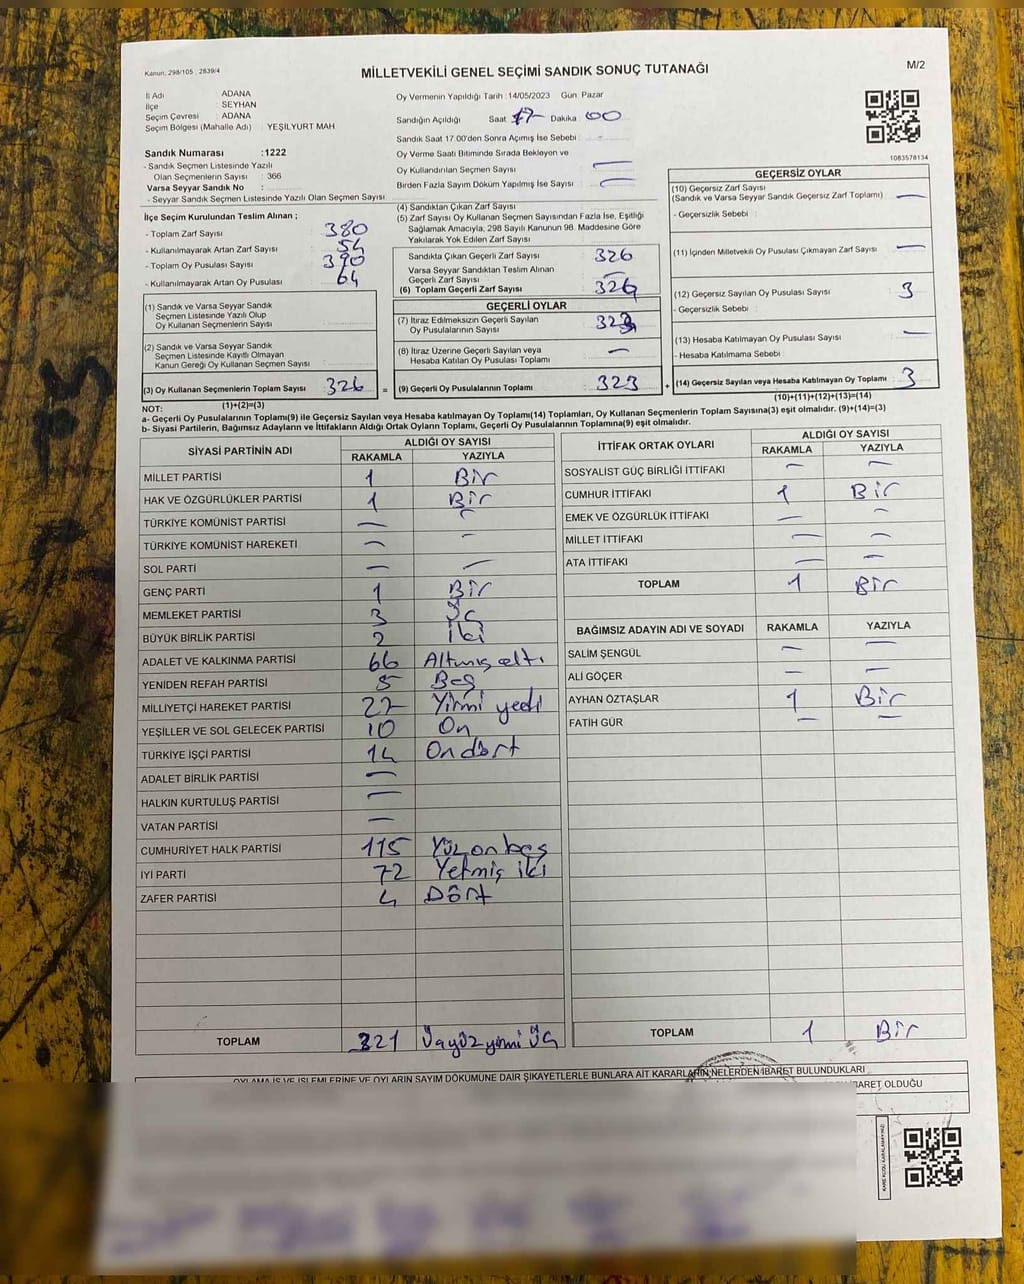 Kanun. 298/105 : 2839/4
MİLLETVEKİLİ GENEL SEÇİMİ SANDIK SONUÇ TUTANAĞI
M/2
İl Adı : ADANA
İlçe : SEYHAN
Seçim Çevresi : ADANA
Seçim Bölgesi (Mahalle Adı) : YEŞİLYURT MAH
Sandık Numarası :1222
- Sandık Seçmen Listesinde Yazılı
Olan Seçmenlerin Sayısı : 366
Varsa Seyyar Sandık No :
- Seyyar Sandık Seçmen Listesinde Yazılı Olan Seçmen Sayısı
Oy Vermenin Yapıldığı Tarih :14/05/2023 Gün Pazar
Sandığın Açıldığı Saat 17 Dakika 00
Sandık Saat 17.00'den Sonra Açımış İse Sebebi : -
Oy Verme Saati Bitiminde Sırada Bekleyen ve
Oy Kullandırılan Seçmen Sayısı —
Birden Fazla Sayım Döküm Yapılmış İse Sayısı —
1083578134
İlçe Seçim Kurulundan Teslim Alınan ;
- Toplam Zarf Sayısı : 380
- Kullanılmayarak Artan Zarf Sayısı : 54
- Toplam Oy Pusulası Sayısı : 390
- Kullanılmayarak Artan Oy Pusulası : 64
(1) Sandık ve Varsa Seyyar Sandık
Seçmen Listesinde Yazılı Olup
Oy Kullanan Seçmenlerin Sayısı :
(2) Sandık ve Varsa Seyyar Sandık
Seçmen Listesinde Kayıtlı Olmayan
Kanun Gereği Oy Kullanan Seçmen Sayısı :
(3) Oy Kullanan Seçmenlerin Toplam Sayısı 326 =
(1)+(2)=(3)
(4) Sandıktan Çıkan Zarf Sayısı :
(5) Zarf Sayısı Oy Kullanan Seçmen Sayısından Fazla İse, Eşitliği
Sağlamak Amacıyla, 298 Sayılı Kanunun 98. Maddesine Göre
Yakılarak Yok Edilen Zarf Sayısı
Sandıkta Çıkan Geçerli Zarf Sayısı 326
Varsa Seyyar Sandıktan Teslim Alınan
Geçerli Zarf Sayısı —
(6) Toplam Geçerli Zarf Sayısı 326
GEÇERLİ OYLAR
(7) İtiraz Edilmeksizin Geçerli Sayılan
Oy Pusulalarının Sayısı : 323
(8) İtiraz Üzerine Geçerli Sayılan veya
Hesaba Katılan Oy Pusulası Toplamı —
(9) Geçerli Oy Pusulalarının Toplamı : 323 +
GEÇERSİZ OYLAR
(10) Geçersiz Zarf Sayısı
(Sandık ve Varsa Seyyar Sandık Geçersiz Zarf Toplamı) —
- Geçersizlik Sebebi :
(11) İçinden Milletvekili Oy Pusulası Çıkmayan Zarf Sayısı —
(12) Geçersiz Sayılan Oy Pusulası Sayısı : 3
- Geçersizlik Sebebi :
(13) Hesaba Katılmayan Oy Pusulası Sayısı : —
- Hesaba Katılmama Sebebi :
(14) Geçersiz Sayılan veya Hesaba Katılmayan Oy Pusulası Toplamı 3
(10)+(11)+(12)+(13)=(14)
NOT:
a- Geçerli Oy Pusulalarının Toplamı(9) ile Geçersiz Sayılan veya Hesaba katılmayan Oy Toplamı(14) Toplamları, Oy Kullanan Seçmenlerin Toplam Sayısına(3) eşit olmalıdır. (9)+(14)=(3)
b- Siyasi Partilerin, Bağımsız Adayların ve İttifakların Aldığı Ortak Oyların Toplamı, Geçerli Oy Pusulalarının Toplamına(9) eşit olmalıdır.
SİYASİ PARTİNİN ADI ALDIĞI OY SAYISI
RAKAMLA YAZIYLA
MİLLET PARTİSİ 1 Bir
HAK VE ÖZGÜRLÜKLER PARTİSİ 1 Bir
TÜRKİYE KOMÜNİST PARTİSİ — —
TÜRKİYE KOMÜNİST HAREKETİ — —
SOL PARTİ — —
GENÇ PARTİ 1 Bir
MEMLEKET PARTİSİ 3 Üç
BÜYÜK BİRLİK PARTİSİ 2 İki
ADALET VE KALKINMA PARTİSİ 66 Altmış altı
YENİDEN REFAH PARTİSİ 5 Beş
MİLLİYETÇİ HAREKET PARTİSİ 27 Yirmi yedi
YEŞİLLER VE SOL GELECEK PARTİSİ 10 On
TÜRKİYE İŞÇİ PARTİSİ 14 On dört
ADALET BİRLİK PARTİSİ —
HALKIN KURTULUŞ PARTİSİ —
VATAN PARTİSİ —
CUMHURİYET HALK PARTİSİ 115 Yüz on beş
İYİ PARTİ 72 Yetmiş iki
ZAFER PARTİSİ 4 Dört
TOPLAM 321 Üçyüz yirmi Üç
İTTİFAK ORTAK OYLARI ALDIĞI OY SAYISI
RAKAMLA YAZIYLA
SOSYALİST GÜÇ BİRLİĞİ İTTİFAKI — —
CUMHUR İTTİFAKI 1 Bir
EMEK VE ÖZGÜRLÜK İTTİFAKI — —
MİLLET İTTİFAKI — —
ATA İTTİFAKI — —
TOPLAM 1 Bir
BAĞIMSIZ ADAYIN ADI VE SOYADI RAKAMLA YAZIYLA
SALİM ŞENGÜL — —
ALİ GÖÇER — —
AYHAN ÖZTAŞLAR 1 Bir
FATİH GÜR — —
TOPLAM 1 Bir
OYLAMA İŞ VE İŞLEMLERİNE VE OYLARIN SAYIM DÖKÜMÜNE DAİR ŞİKAYETLERLE BUNLARA AİT KARARLARIN NELERDEN İBARET BULUNDUKLARI
İBARET OLDUĞU
KARE KODU KARALAMAYINIZ